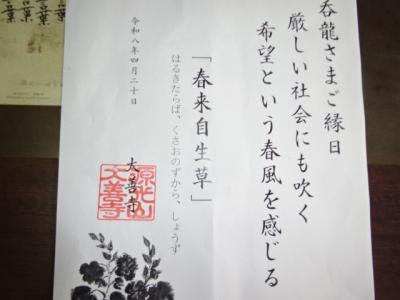 呑龍さまご縁日
厳しい社会にも吹く
希望という春風を感じる
「春来自生草」
はるきたらば、くさおのずから、しょうず
令和八年四月二十日
大善寺